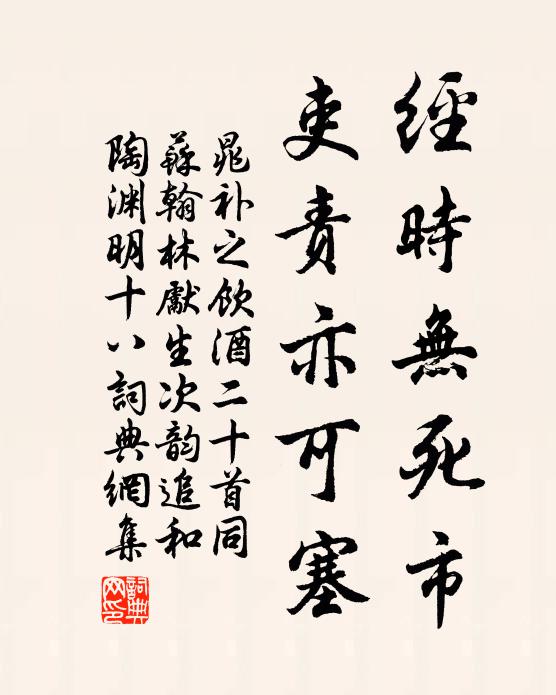 經時無死市
吏責亦可塞
晁补之飲酒二十首同
蘇翰林獻生次韵追和
陶渊明十八詞典網集
詞典
网印